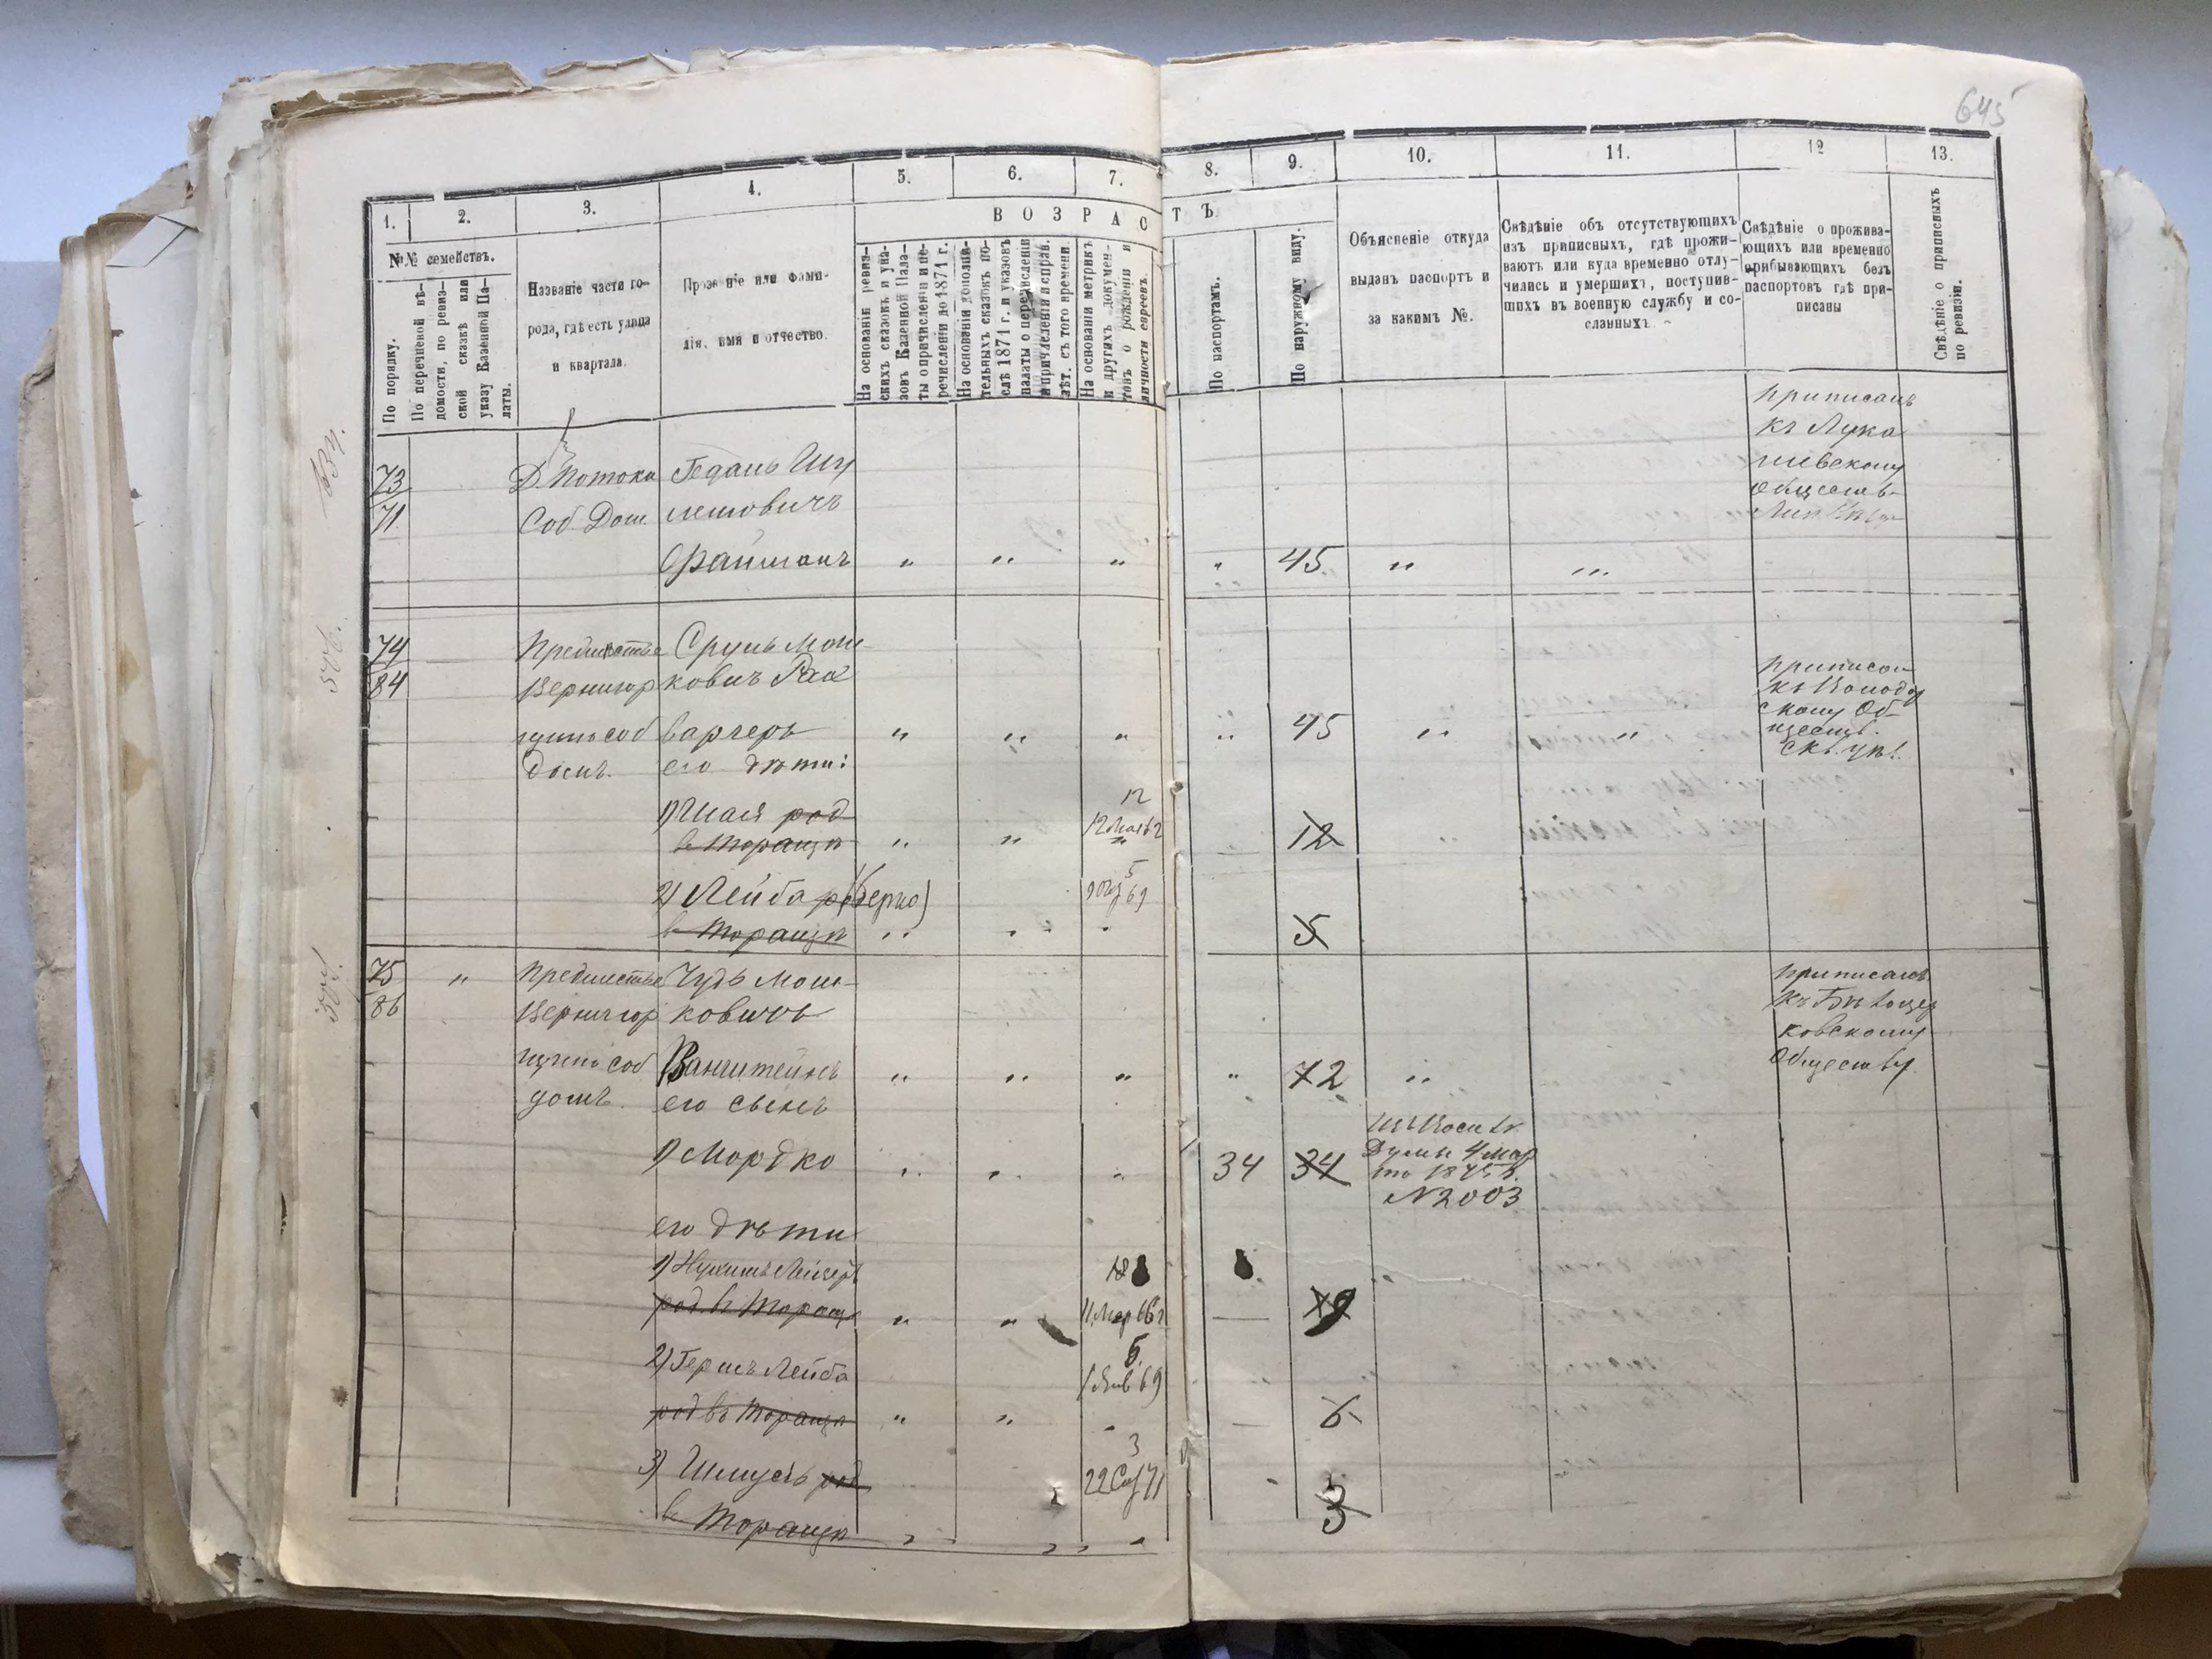 645
1. 2. 3. 4. 5. 6. 7. 8. 9. 10. 11. 12 13.
В О З Р А С Т Ъ
№№ семействъ.
По порядку.
По перечневой вѣ-
домости, по ревиз-
ской сказкѣ или
указу Казенной Па-
латы.
Названіе части го-
рода, гдѣ есть улица
и квартала.
Прозваніе или фами-
лія, имя и отчество.
На основаніи ревиз-
скихъ сказокъ и ука-
зовъ Казенной Пала-
ты о причисленіи и пе-
речисленіи до 1871 г.
На основаніи дополни-
тельныхъ сказокъ по-
слѣ 1871 г. и указовъ
палаты о перечисленіи
и причисленіи и справ.
лѣт. съ того времени.
На основаніи метрикъ
и другихъ докумен-
товъ о рожденіи и
личности евреевъ.
По паспортамъ.
По наружному виду.
Объясненіе откуда
выданъ паспортъ и
за какимъ №.
Свѣдѣніе объ отсутствующихъ
изъ приписныхъ, гдѣ прожи-
ваютъ или куда временно отлу-
чились и умершихъ, поступив-
шихъ въ военную службу и со-
сланныхъ.
Свѣдѣніе о прожива-
ющихъ или временно
прибывающихъ безъ
паспортовъ гдѣ при-
писаны
Свѣдѣніе о приписныхъ
по ревизіи.
73 Д. Потока Гедаль Шу
71 Соб Дом лимовичъ
Файманъ " " " " 45 " "
приписанъ
къ Лука
шевскому
обществ-
74 Предместье Сруль Мош-
84 Вернигор ковичъ Рак
щина соб варгеръ " " " " 45 " "
домъ. его дѣти:
приписан
скому Об-
ществ.
1) Шая род 12
в Таращѣ " " 12 Мая 62 12
2) Лейба ро (Берко) 5
в Таращѣ " " 69 5
75 " Предместье Чудъ Мош-
86 Вернигор ковичъ
щина соб Ванштейнъ " " " " 72 "
домъ. его сынъ
приписанъ
къ Бѣлоцер
ковскому
Обществу
1) Мордко " " " 34 34
Думы 4 Мар
та 1875 г.
№ 2003
его дѣти
род. в Тараще " " 11 Мар 66 г — 9
2) Гершъ Лейба 6.
1 Янв 69
род въ Таращѣ " " — 6
3) Шмуль род 3
22 71
в Таращѣ 3